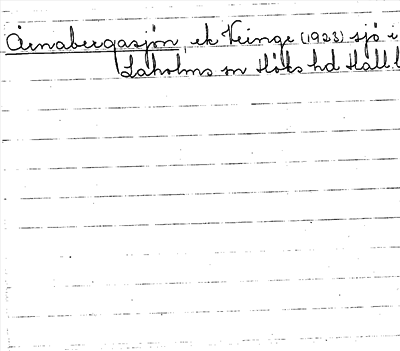 Årnabergasjön, ek Veinge (1923) sjö i
Laholms sn Höks hd Hall. l